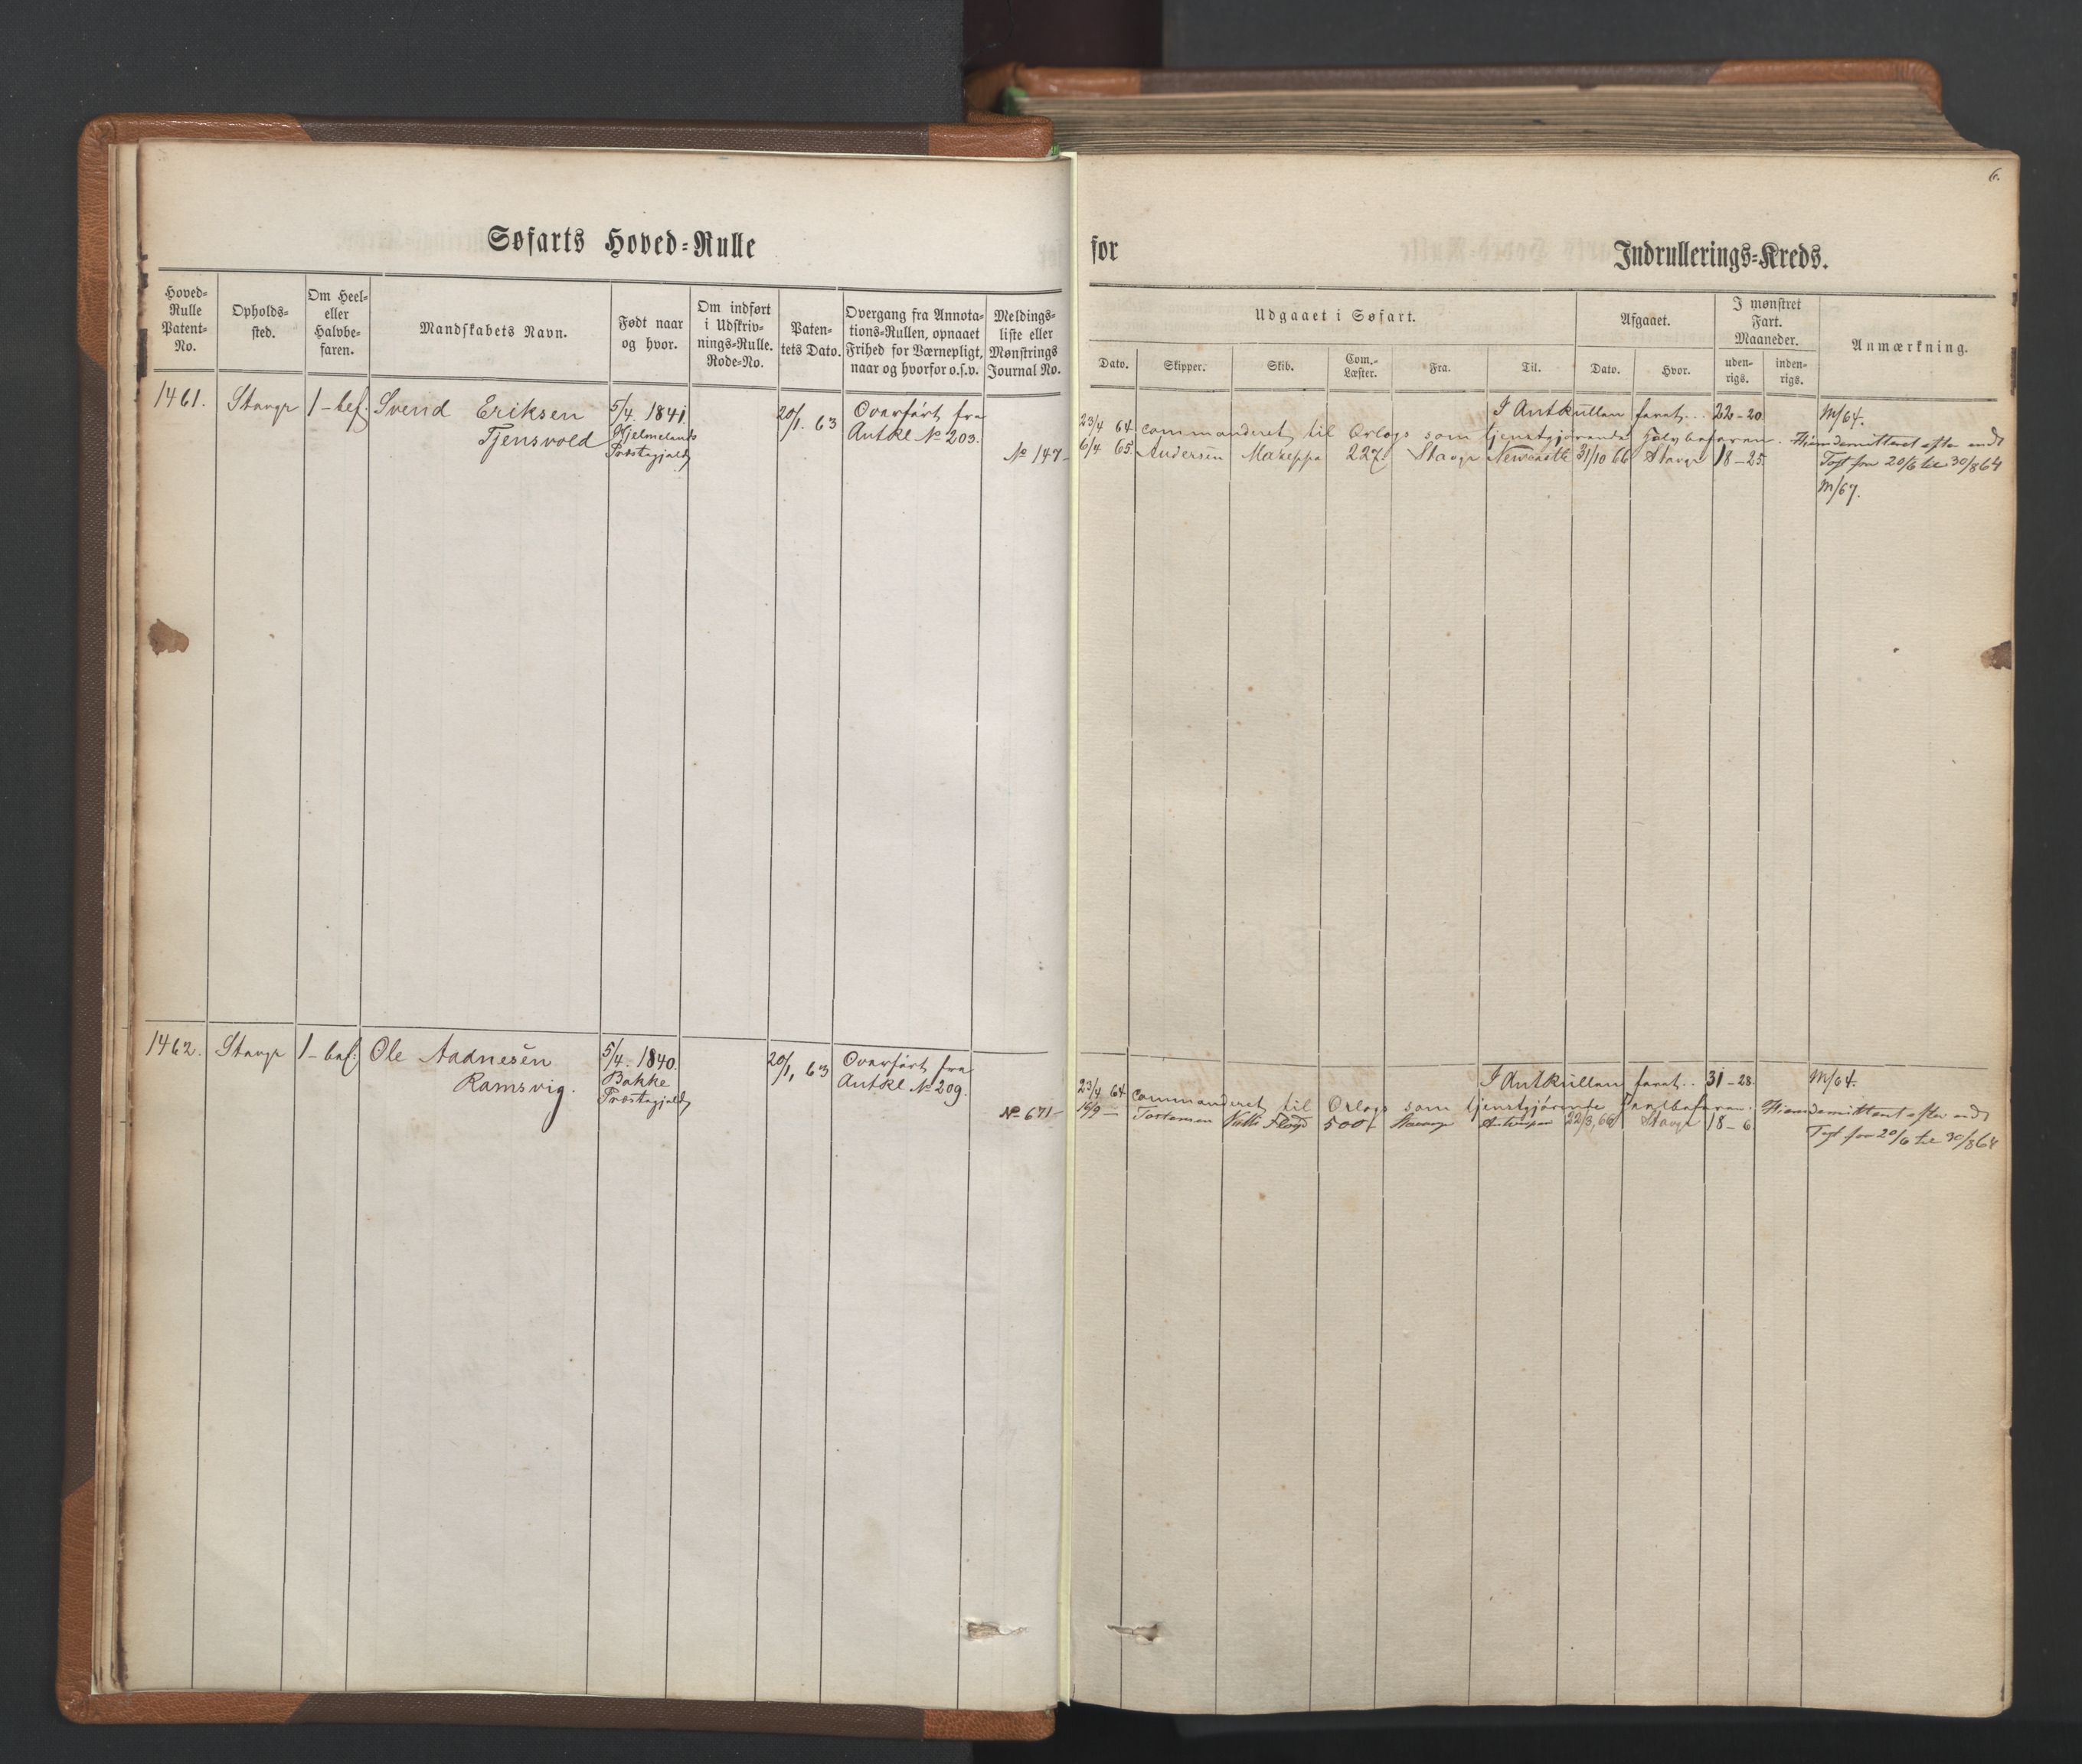 6.
Søfarts Hoved-Rulle
for
Indrullerings-Kreds.
Hoved-
Rulle
Patent-
No.
Opholds-
sted.
Om Heel-
eller
Halvbe-
faren.
Mandskabets Navn.
Født naar
og hvor.
Om indført
i Udskriv-
nings-Rulle.
Rode-No.
Paten-
tets Dato.
Overgang fra Annota-
tions-Rullen, opnaaet
Frihed for Værnepligt,
naar og hvorfor o.s.v.
Meldings-
liste eller
Mønstrings
Journal No.
Udgaaet i Søfart.
Dato.
Skipper.
Skib.
Com.-
Læster.
Fra.
Til.
Afgaaet.
Dato.
Hvor.
I mønstret
Fart.
Maaneder.
uden-
rigs.
inden-
rigs.
Anmærkning.
1461.
Stavgr
1-bef.
Svend Eriksen
Tjensvold
5/4. 1841
Hjelmelands
Præstegjeld
20/1. 63
Overført fra
Antkl № 203.
№ 147-
I Antrullen faret... 22-20
23/4 64. commanderet til Orlogs som tjenstgjørende Halvbefaren.
6/4 65. Andersen Mazeppa 227 Stavgr Newcastle 31/10 66 Stavgr 18-25
M/64.
Hiemdemitteret efter endt
Togt fra 20/6 til 30/8 64
M/67.
1462.
Stavgr
1-bef:
Ole Aadnesen
Ramsvig.
5/4. 1840.
Bakke
Præstegjeld
20/1, 63
Overført fra
Antkl № 209.
№ 671-
I Antrullen faret.. 31-28
23/4 64 commanderet til Orlogs som tjenstgjørende
Stavgr Antwerpen 22/3, 66 Stavgr 18-6
M/64.
Hiemdemitteret efter endt
Togt fra 20/6 til 30/8 64